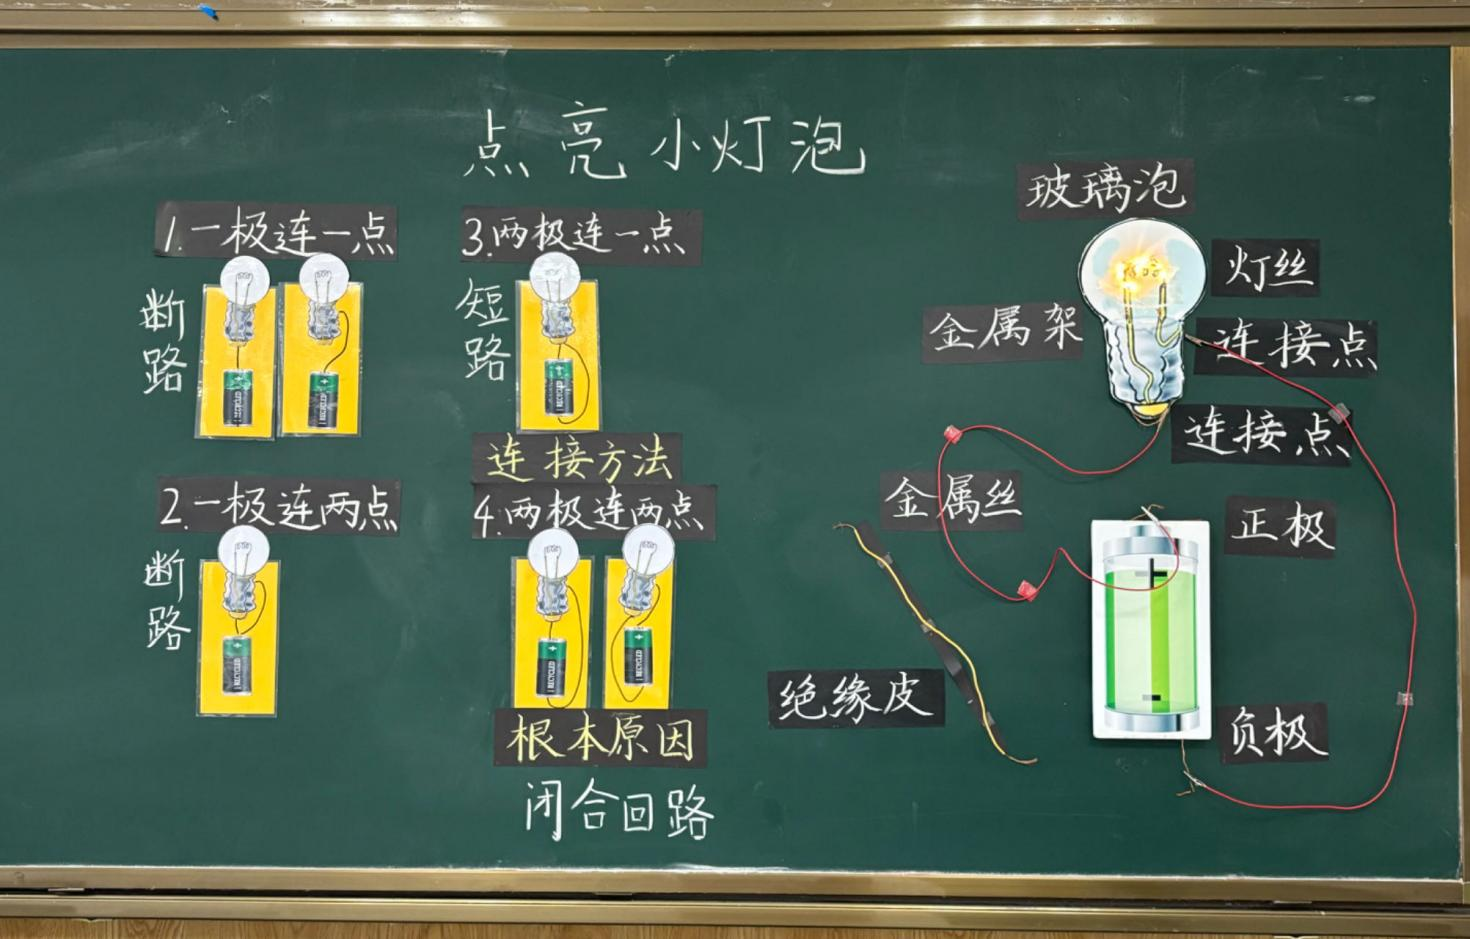 点亮小灯泡
1.一极连一点
断路
2.一极连两点
断路
3.两极连一点
短路
连接方法
4.两极连两点
RECYCLED
RECYCLED
根本原因
闭合回路
玻璃泡
灯丝
金属架
连接点
连接点
金属丝
正极
绝缘皮
负极